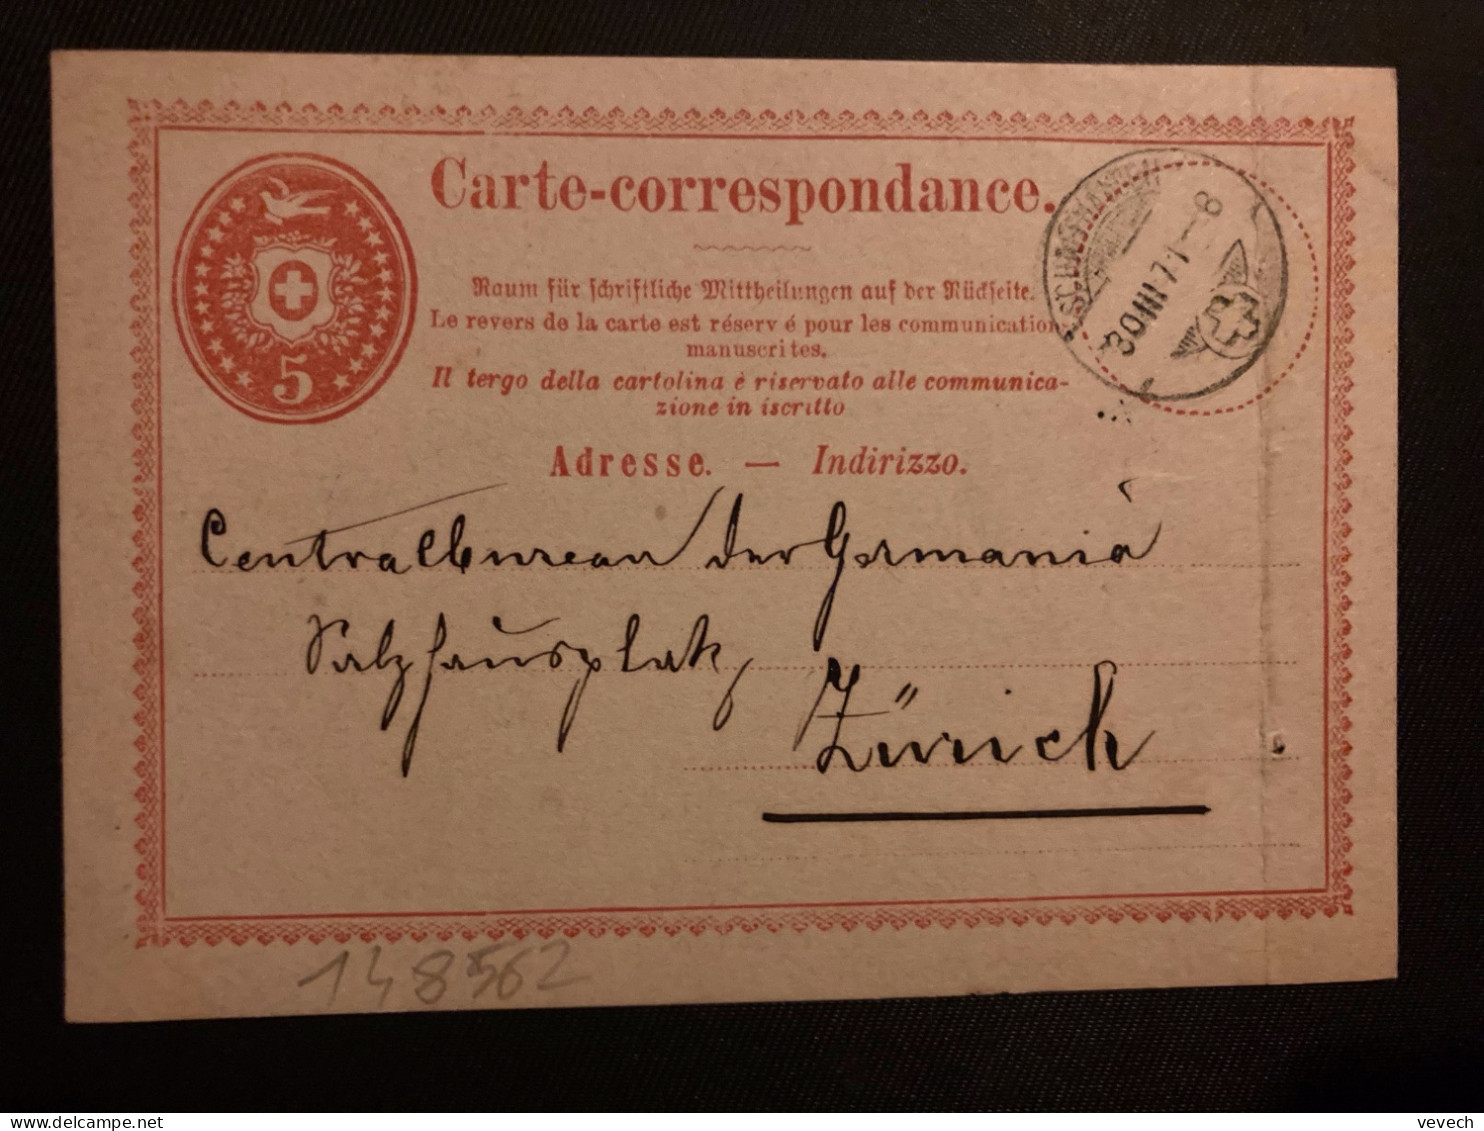 Carte-correspondance.
Raum für schriftliche Mittheilungen auf der Rückseite.
Le revers de la carte est réservé pour les communications
manuscrites.
Il tergo della cartolina è riservato alle communica-
zione in iscritto
Adresse. — Indirizzo.
5
30 III 71-8
Centralbureau der Germania
Salzhausplatz
Zürich
148562
vevech